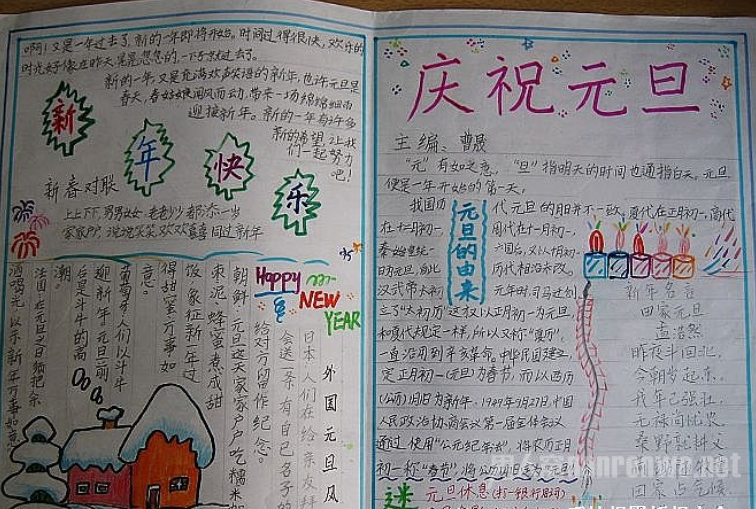 啊！又是一年过去了，新的一年即将开始。时间过得很快，欢乐的
时光好像在昨天
新的一年，又是充满欢声笑语的新年，也许元旦是
春天，春姑娘随风而动，带来一场绵绵细雨
迎接新年。新的一年有许多
新的希望，让我
们一起努力
吧！
新年快乐
新春对联
上上下下，男男女女，老老少少都添一岁
家家户户，说说笑笑，欢欢喜喜同过新年
Happy
NEW
YEAR
外国元旦风
日本：人们在给亲友拜
会送一条有自己名字的
给对方留作纪念。
朝鲜：元旦这天家家户户吃糯米加
枣泥、蜂蜜煮成甜
饭，象征新年过
得甜蜜，万事如
意。
葡萄牙：人们以斗牛
迎新年。元旦前
后是斗牛的高
潮。
法国：在元旦之日须把余
酒喝光，以示新年万事如意
庆祝元旦
主编：曹晟
“元”有如之意，“旦”指明天的时间也通指白天。元旦
便是一年开始的第一天。
元旦的由来
我国历代元旦的月日并不一致。夏代在正月初一，商代
在十二月初一，周代在十一月初一，
秦始皇统一六国后，又以十月初一
为元旦，自此历代相沿不改。
汉武帝太初元年时，司马迁创
立了“太初历”，这才又以正月初一为元旦
和夏代规定一样，所以又称“夏历”，
一直沿用到辛亥革命。中华民国建立，
定正月初一(元旦)为春节，而以西历
(公历)1月1日为新年。1949年9月27日，中国
人民政治协商会议第一届全体会议
通过使用“公元纪年法”，将农历正月
初一称“春节”，将公历1月1日定为“元旦”
新年名言
田家元旦
孟浩然
昨夜斗回北，
今朝岁起东。
我年已强壮，
无禄尚忧农。
桑野就耕父
田家占气候
迷
元旦休息(打一银行用词)